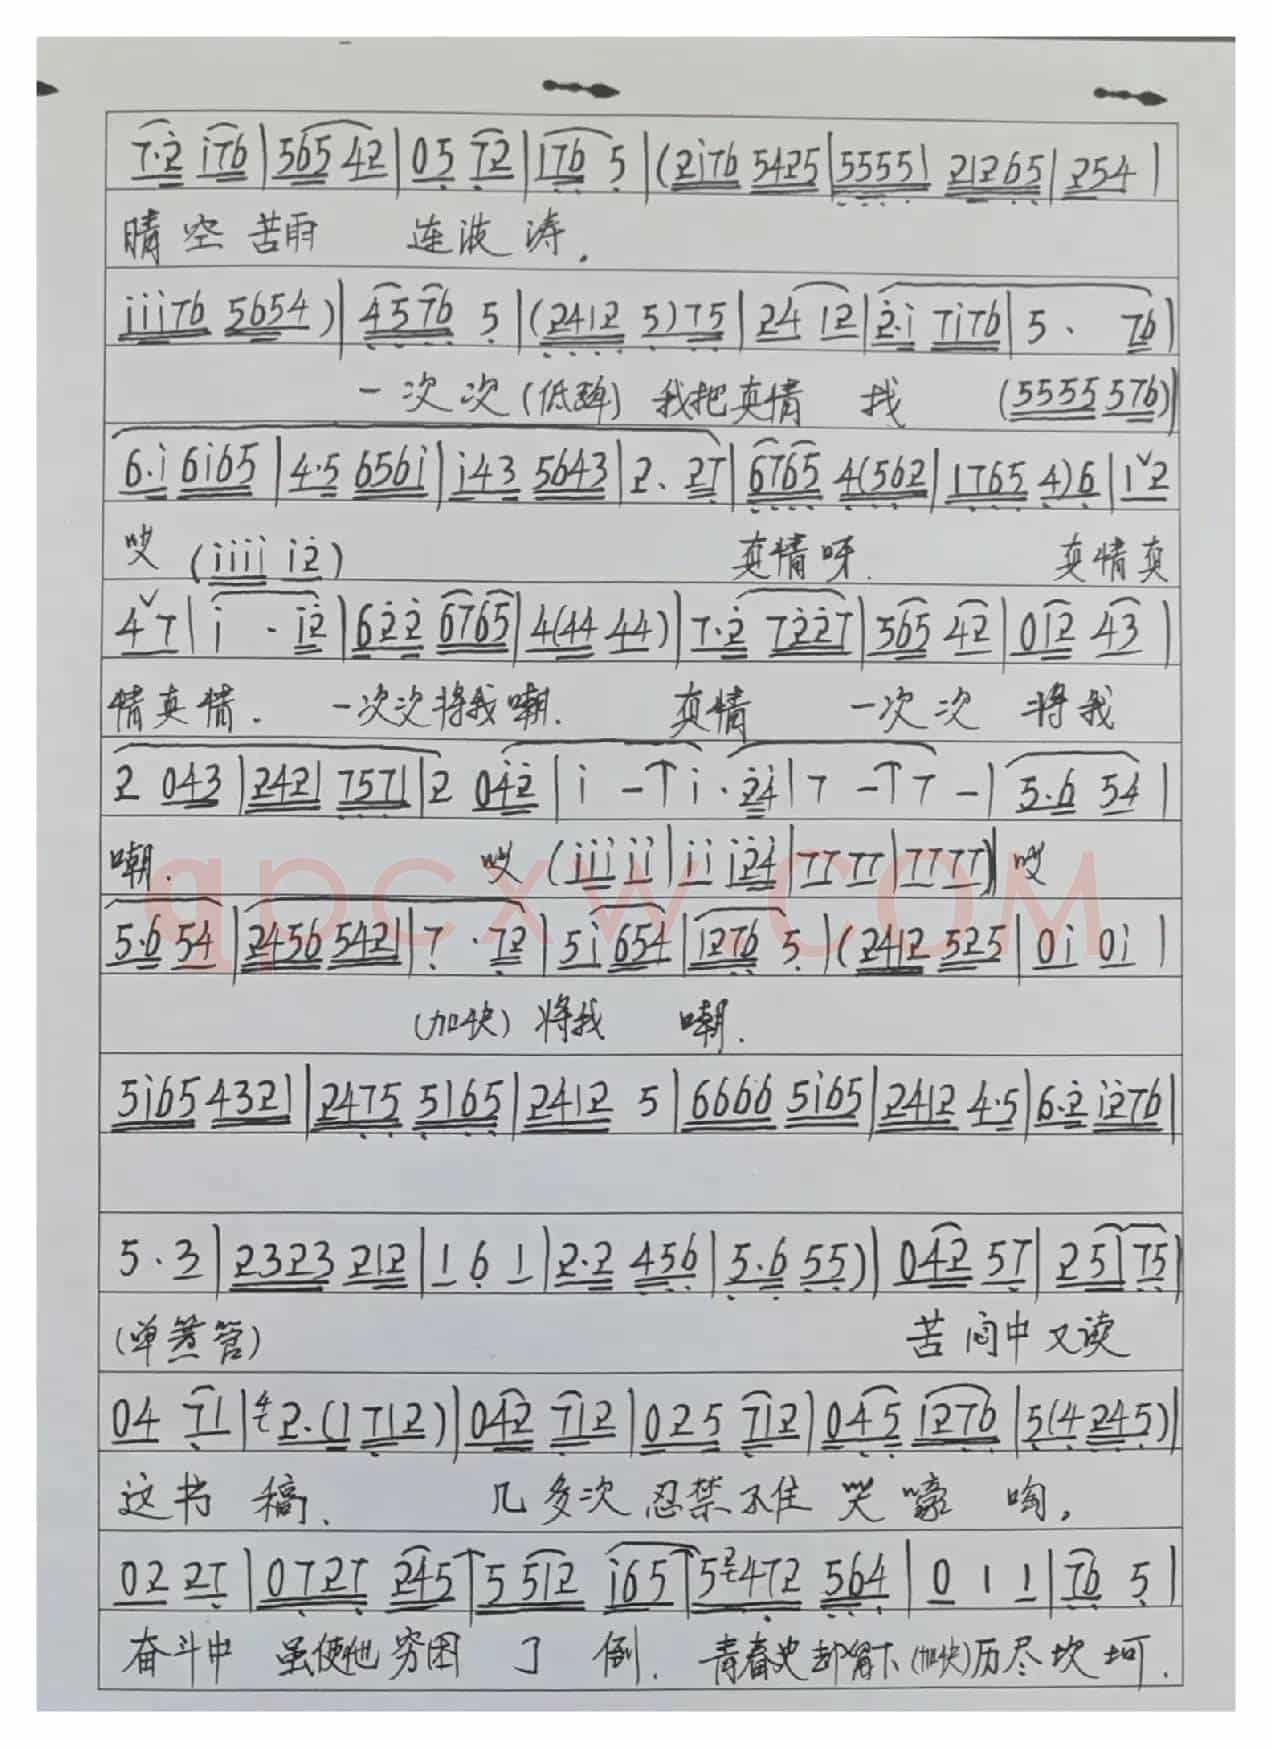 7·2 i76 | 565 42 | 05 72 | 176 5 | (2i76 5425 | 55551 21265 | 254 |
晴空苦雨 连波涛.
iii76 5654) | 4576 5 | (2412 5)75 | 24 12 | 2·i 7i76 | 5 · 76 |
一次次(低蹕)我把真情 找 (5555 576)
6·i 6i65 | 4·5 656i | i43 5643 | 2. 27 | 6765 4(562 | 1765 4)6 | 1ˇ2
哎 (iiii i2) 真情呀. 真情真
4ˇ7 | i · i2 | 622 6765 | 4(44 44) | 7·2 7227 | 565 42 | 012 43 |
情真情. 一次次将我嘲. 真情 一次次 将我
2 043 | 2421 7571 | 2 042 | i - ↑ i · 24 | 7 - ↑ 7 - | 5·6 54 |
嘲. 哎 (iii ii | ii i24 | 77 77 | 77 77) 哎
qpcxw.COM
5·6 54 | 2456 5421 | 7 · 72 | 5i 654 | i276 5 | (2412 525 | 0i 0i |
(加快) 将我 嘲.
5i65 4321 | 2475 5165 | 2412 5 | 6666 5i65 | 2412 4·5 | 6·2 i276 |
5 · 3 | 2323 212 | 1 6 1 | 2·2 456 | 5·6 55) | 042 57 | 251 75 |
(单蕉管) 苦闷中又读
04 71 | 2·(1 712) | 042 712 | 025 712 | 045 1276 | 5(4 245) |
这书 稿. 几多次 忍禁不住 哭嚎 啕.
02 27 | 0727 245 ↑ 5 512 i65 ↑ 5 472 564 | 0 1 1 | 76 5 |
奋斗中 虽使他穷困 了 倒. 青春史却留下(加快)历尽坎坷.